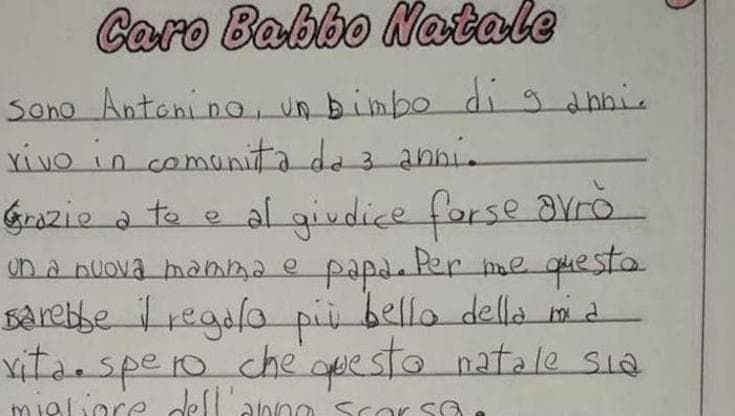 Caro Babbo Natale
sono Antonino, un bimbo di 9 anni.
vivo in comunita da 3 anni.
Grazie a te e al giudice forse avrò
una nuova mamma e papa. Per me questo
sarebbe il regalo più bello della mia
vita. spero che questo natale sia
migliore dell'anno scorso.